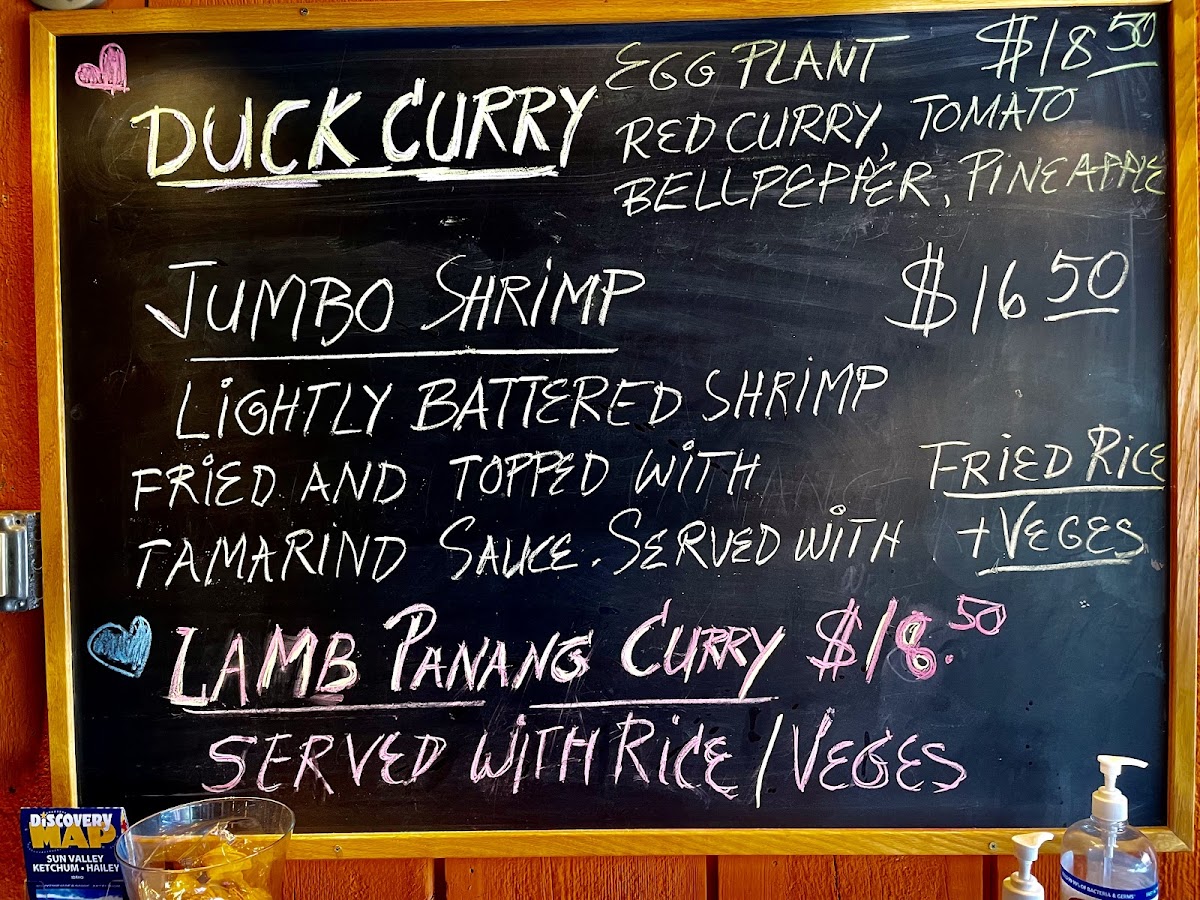 EGG PLANT $18.50
DUCK CURRY RED CURRY, TOMATO
BELLPEPPER, PINEAPPLE
JUMBO SHRIMP $16 50
LIGHTLY BATTERED SHRIMP
FRIED AND TOPPED WITH FRIED RICE
TAMARIND SAUCE. SERVED WITH + VEGES
LAMB PANANG CURRY $18.50
SERVED WITH RICE / VEGES
DISCOVERY
MAP
SUN VALLEY
KETCHUM • HAILEY
IDAHO
OF BACTERIA & GERMS